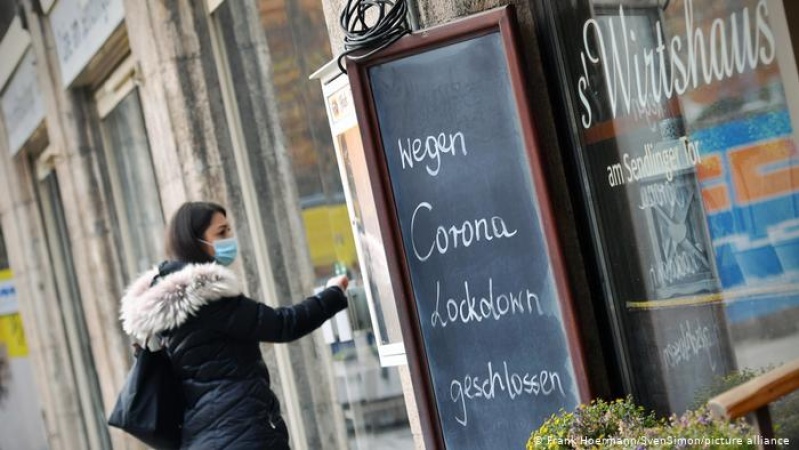 s'Wirtshaus
am Sendlinger Tor
wegen
Corona
Lockdown
geschlossen
© Frank Hoermann/SvenSimon/picture alliance